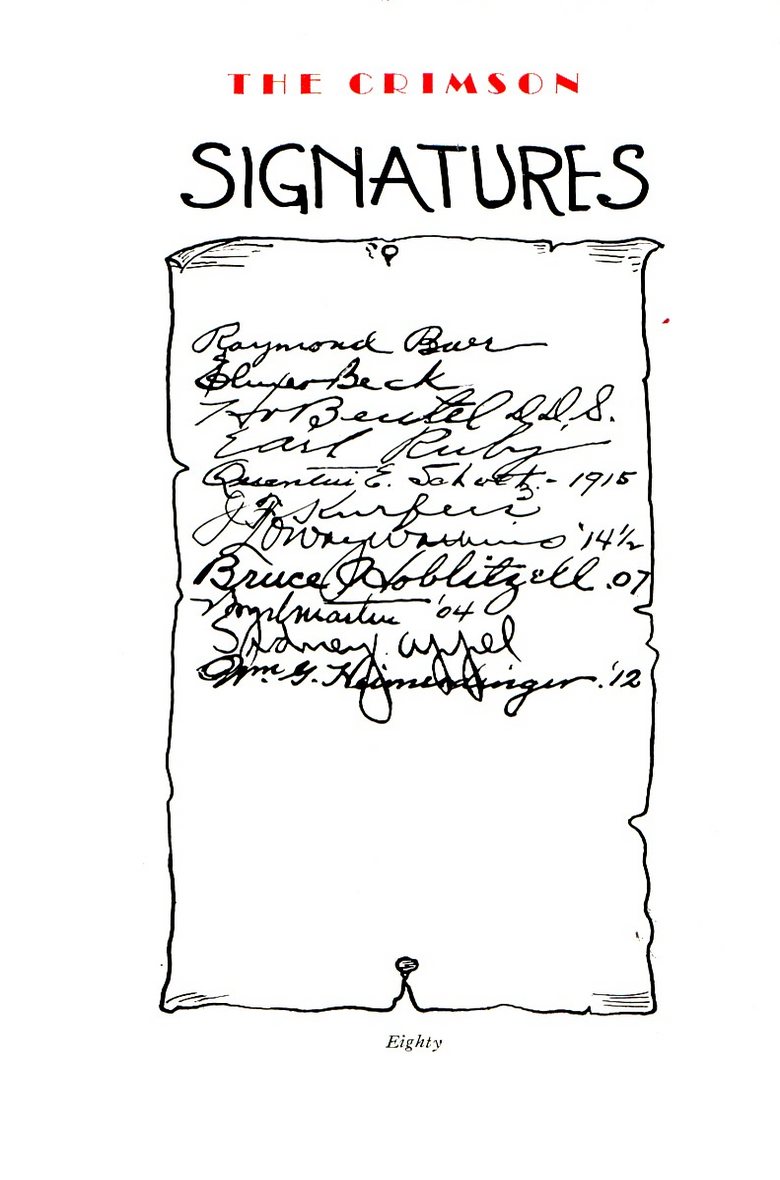 THE CRIMSON
SIGNATURES
Raymond Baer
Elmer Beck
Beutel D.D.S.
Earl Ruby
Quentin E. Scholtz - 1915
J F Kurfees
'14½
Bruce Hoblitzell .07
Virgil Martin '04
Sidney Appel
Wm. G. Heimerdinger .'12
Eighty